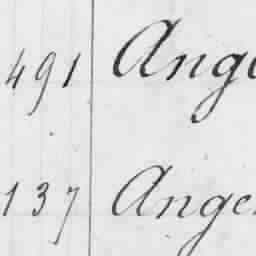 491 Ang
137 Ange